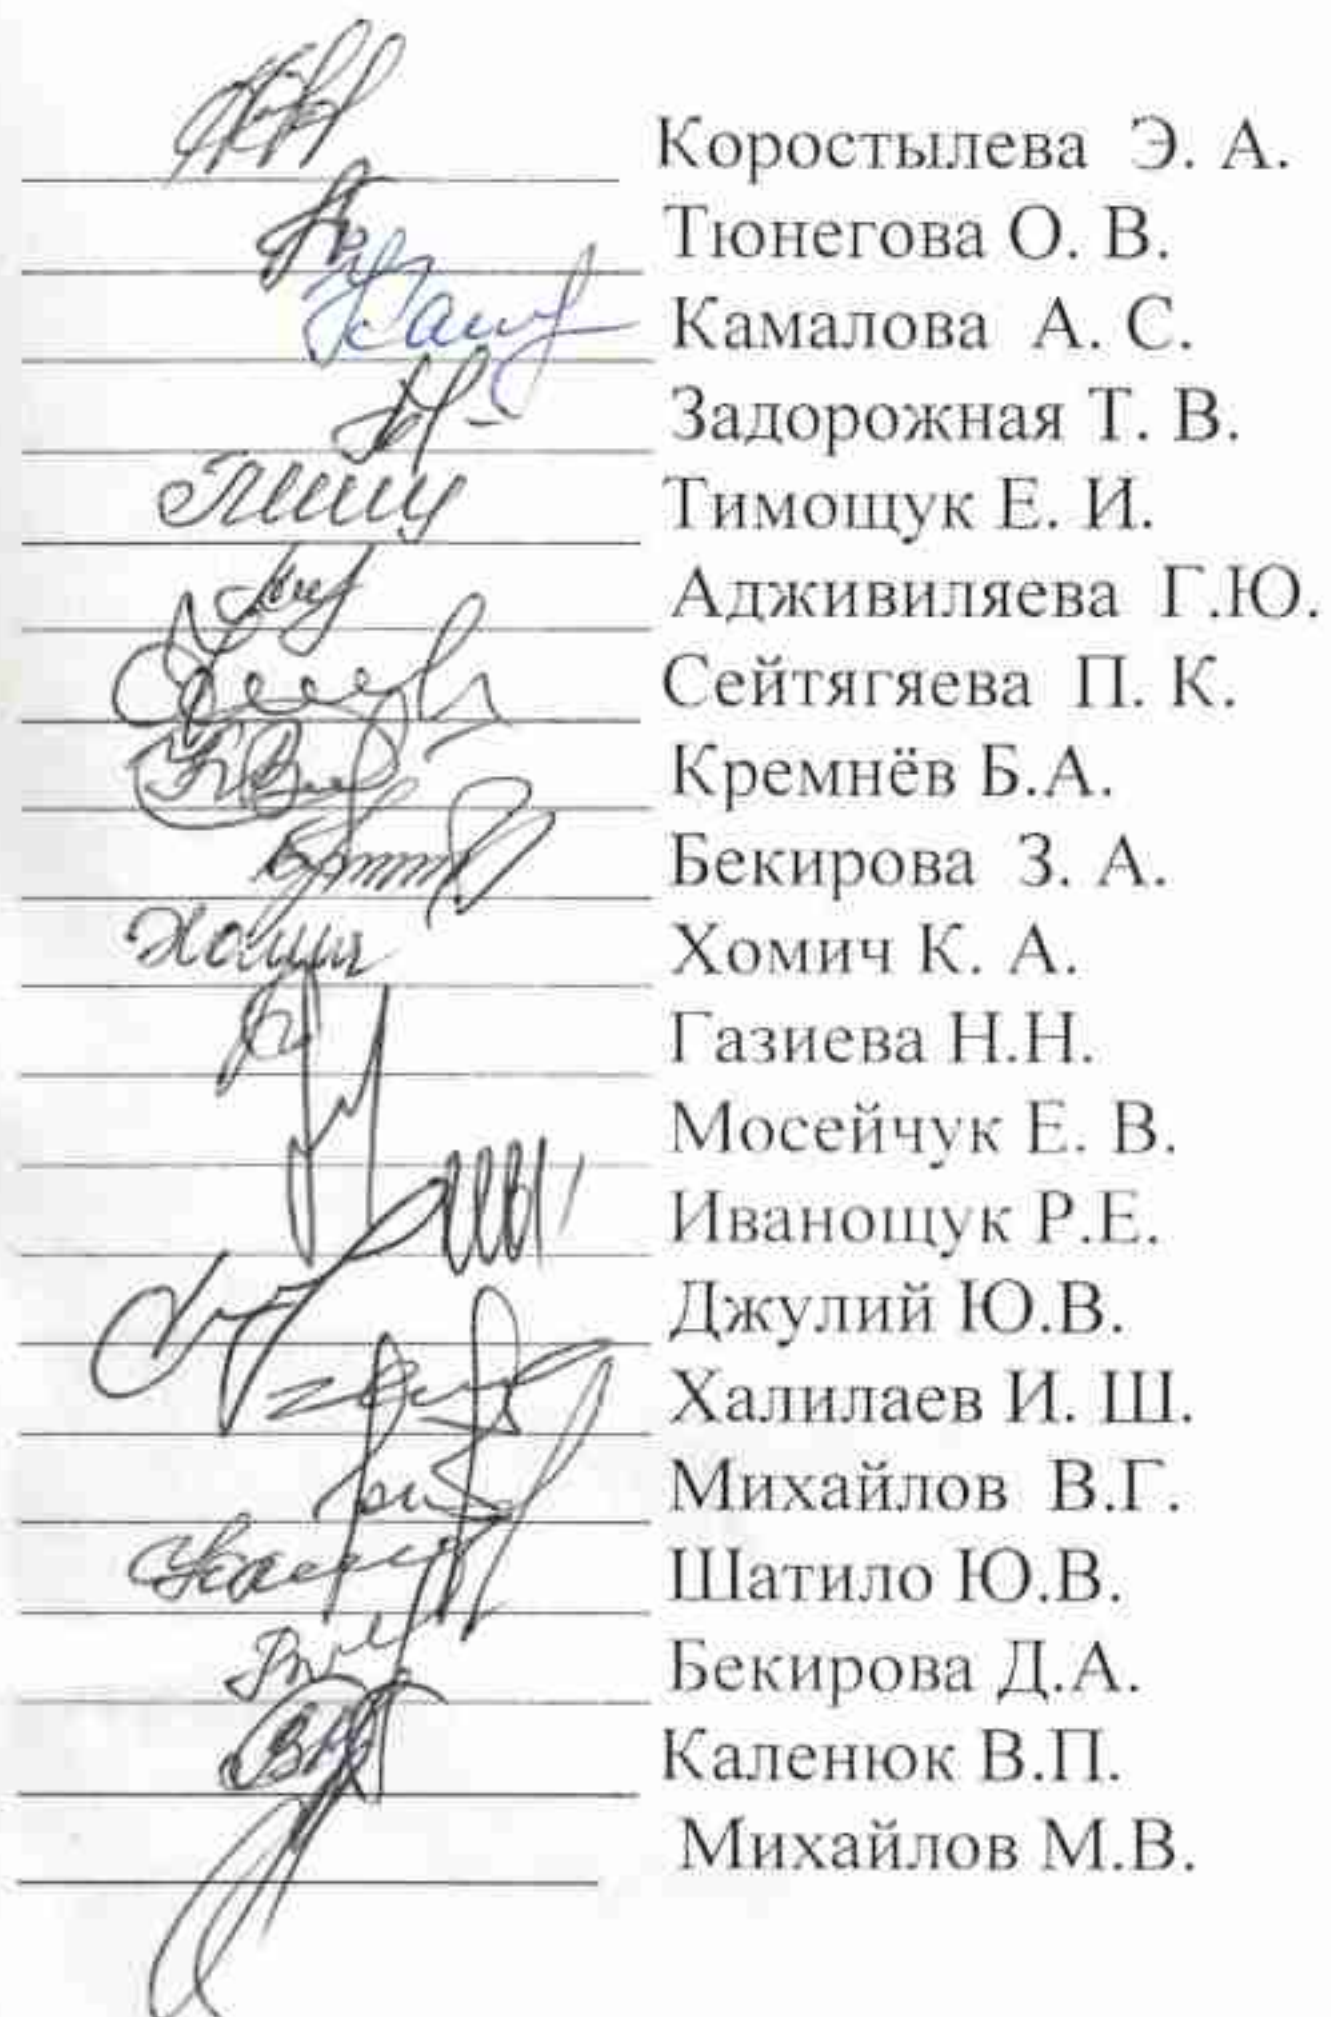 Коростылева Э. А.
Тюнегова О. В.
Камалова А. С.
Задорожная Т. В.
Тимощук Е. И.
Адживиляева Г.Ю.
Сейтягяева П. К.
Кремнёв Б.А.
Бекирова З. А.
Хомич К. А.
Газиева Н.Н.
Мосейчук Е. В.
Иванощук Р.Е.
Джулий Ю.В.
Халилаев И. Ш.
Михайлов В.Г.
Шатило Ю.В.
Бекирова Д.А.
Каленюк В.П.
Михайлов М.В.